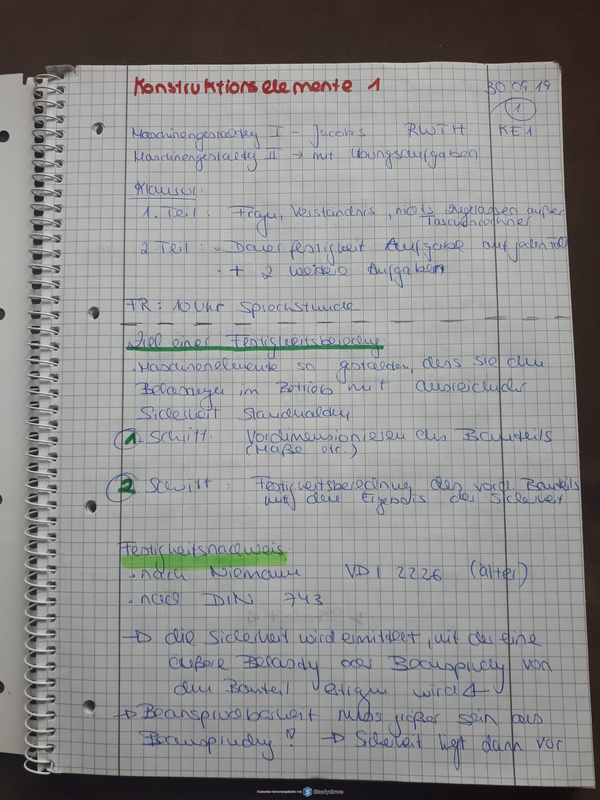 Konstruktionselemente 1
30.09.19
1
Maschinengestaltung I - Jacobs RWTH KE1
Maschinengestaltung II → mit Übungsaufgaben
Klausur:
1. Teil: Fragen, Verständnis, nichts zugelassen außer
Taschenrechner
2 Teil: • Dauerfestigkeit Aufgabe auf jeden Fall
+ 2 weitere Aufgaben
FR: 10 Uhr Sprechstunde
Ziel einer Festigkeitsberechnung
• Maschinenelemente so gestalten, dass sie den
Belastungen im Betrieb mit ausreichender
Sicherheit standhalten
1. Schritt Vordimensionieren des Bauteils
(Maße etc.)
2 Schritt: Festigkeitsberechnung des vord. Bauteils
mit dem Ergebnis der Sicherheit
Festigkeitsnachweis
• nach Niemann VDI 2226 (älter)
• nach DIN 743
→ die Sicherheit wird ermittelt, mit der eine
äußere Belastung oder Beanspruchung von
dem Bauteil ertragen wird
→ Beanspruchbarkeit muss größer sein als
Beanspruchung! → Sicherheit liegt dann vor
Kostenlos heruntergeladen von S Studydrive